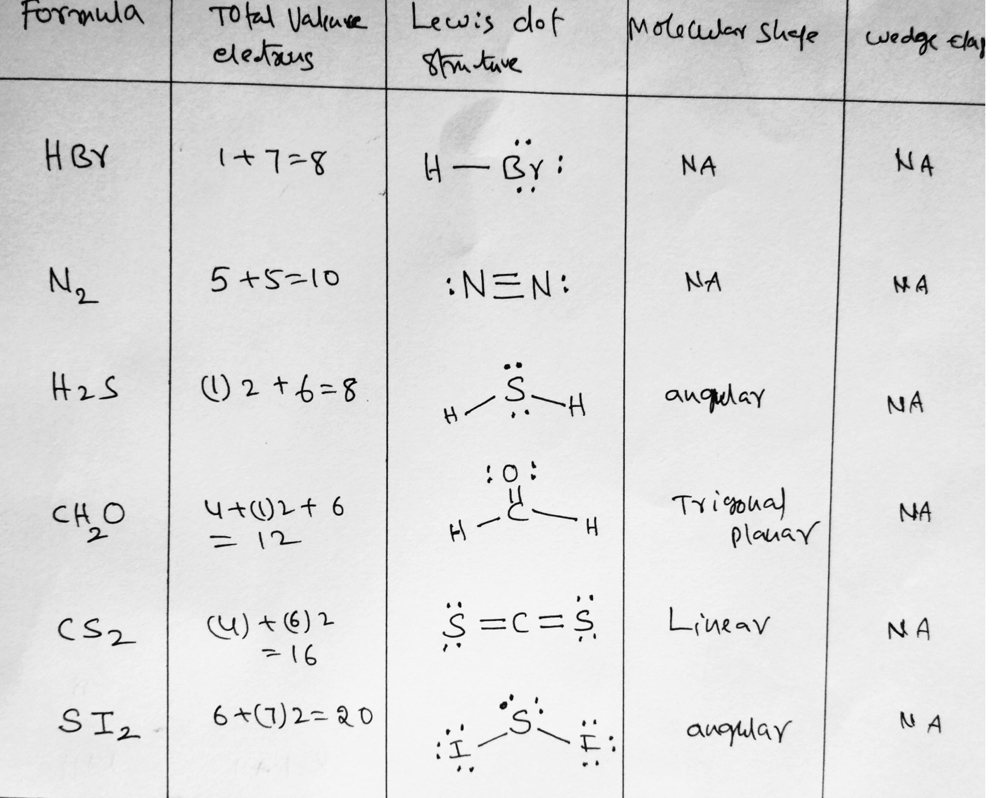 Formula Total Valence electrons Lewis dot structure Molecular shape wedge
HBr 1+7=8 H—Br: NA NA
N2 5+5=10 :N≡N: NA NA
H2S (1)2+6=8 H—S—H angular NA
O
CH2O 4+(1)2+6 H—C—H Trigonal NA
=12 planar
CS2 (4)+(6)2 S=C=S Linear NA
=16
SI2 6+(7)2=20 :I—S—I: angular NA